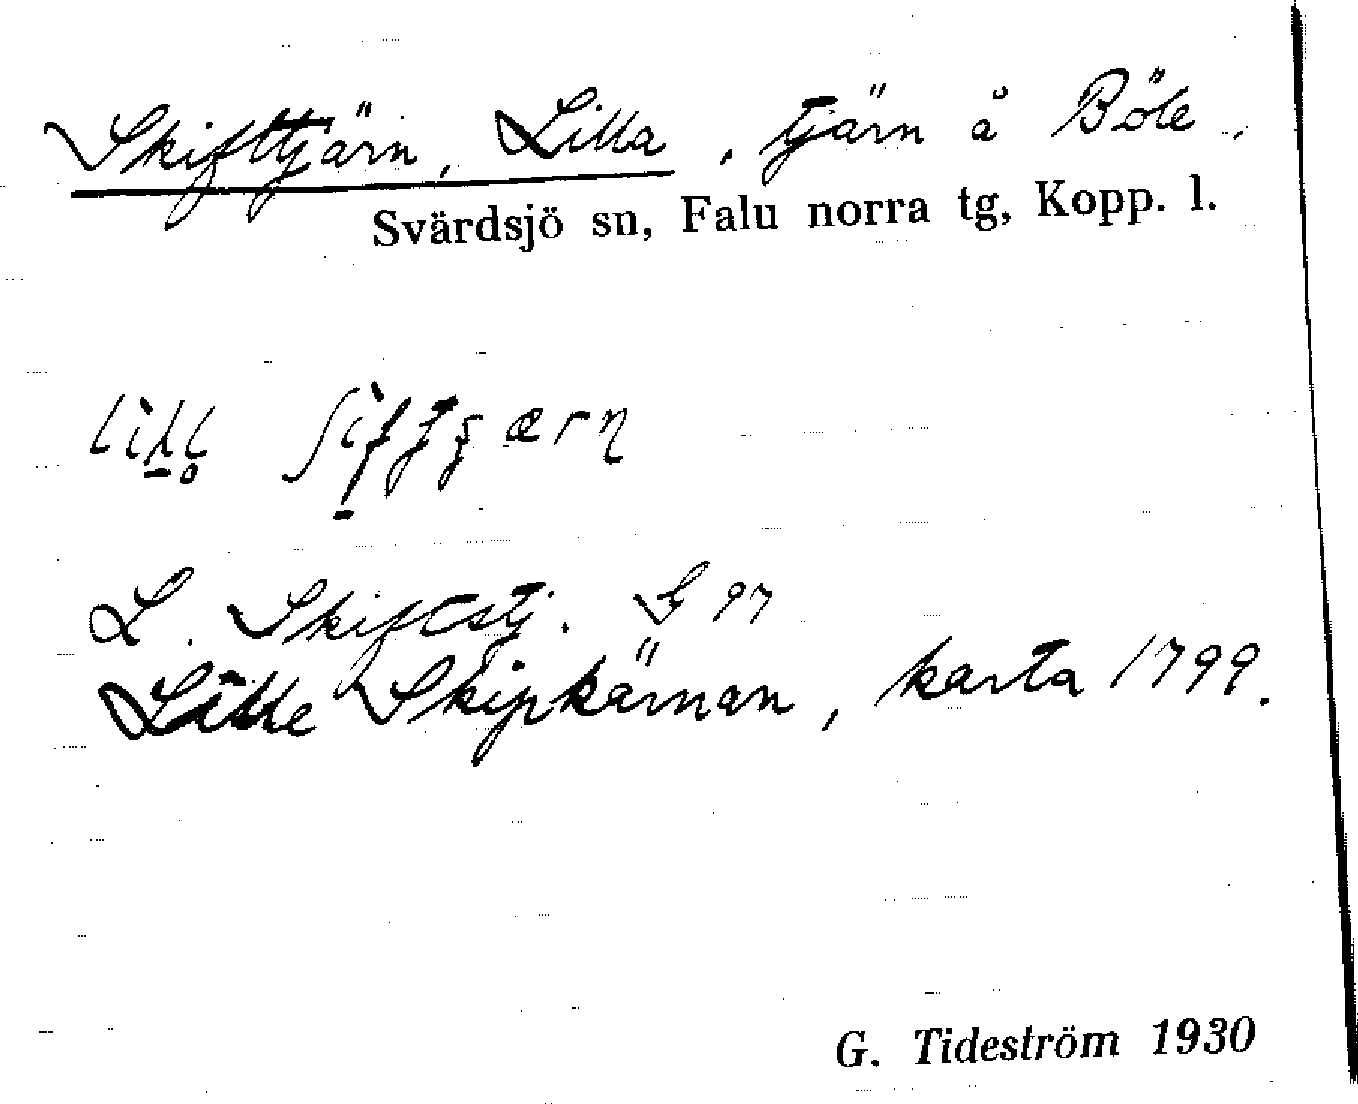 Skifttjärn, Lilla, tjärn å Böle,
Svärdsjö sn, Falu norra tg, Kopp. l.
L. Skiftstj. G 97
Lille Skipkärnan, karta 1799.
G. Tideström 1930